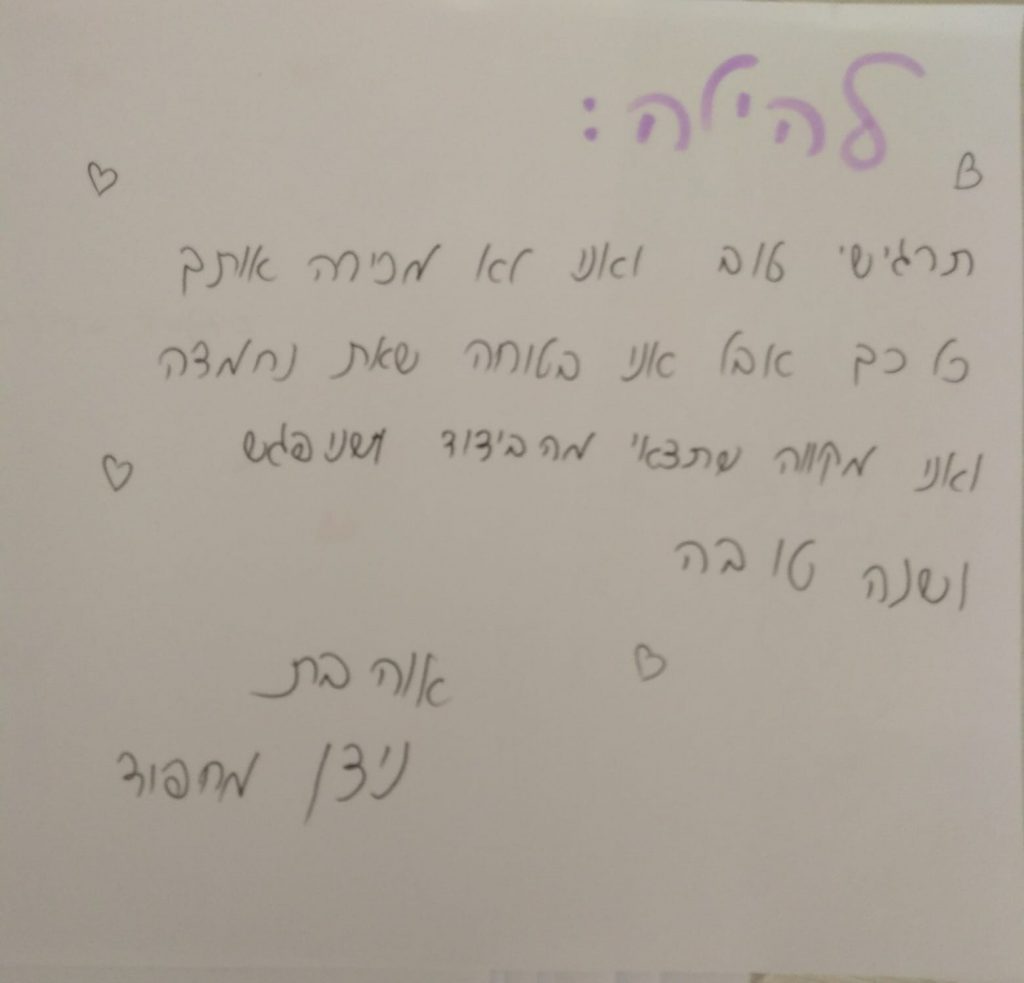 להילה:
תרגישי טוב ואני לא מכירה אותך
כל כך אבל אני בטוחה שאת נחמדה
ואני מקווה שתצאי מהבידוד ושניפגש
ושנה טובה
אוהבת
ניצן מחפוד